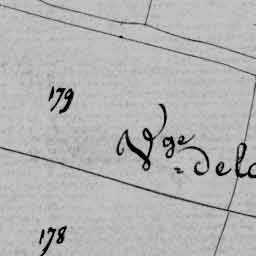 179
Vge de la
178